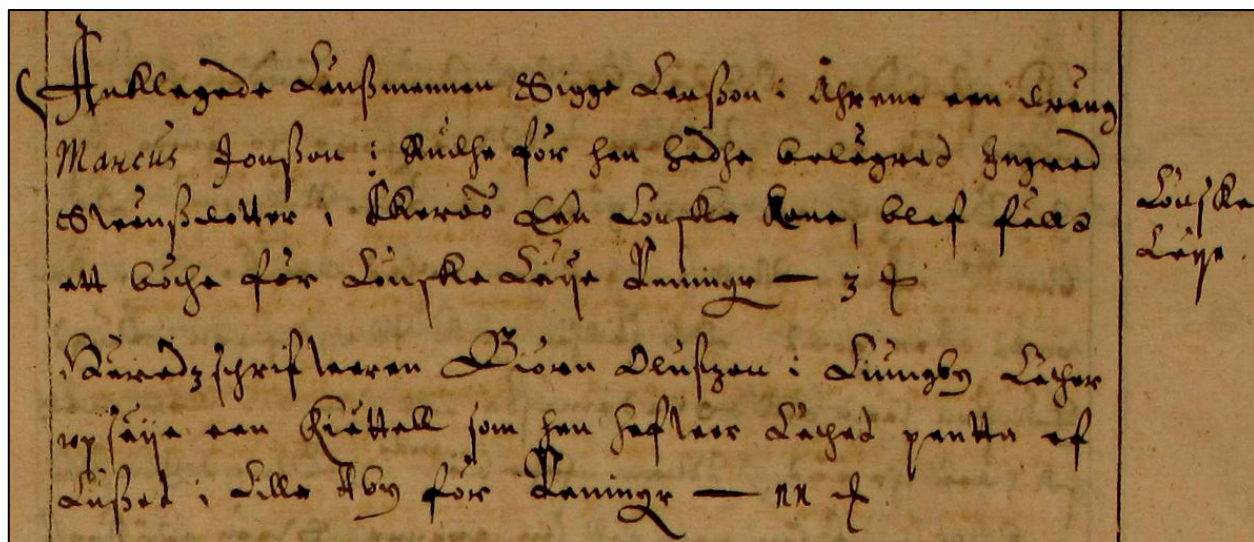 Anklagade Länßmannen Sigge Larßon i Ahrene een dräng
Marcus Jonßon i Rudhe för han hadhe belägrad Ingred
Swänßdotter i Ekeröö Een Lönske Kone, blef fälld
att böthe för Lönske Läije Peningr — 3 d
Häredzschrifweren Biörn Olufzen i Liungby Lather
up säije een Kiättell som han hafwer Lathed pantta af
Lußed i Lille Aby för Peningr — nn d
Lönske
Läije